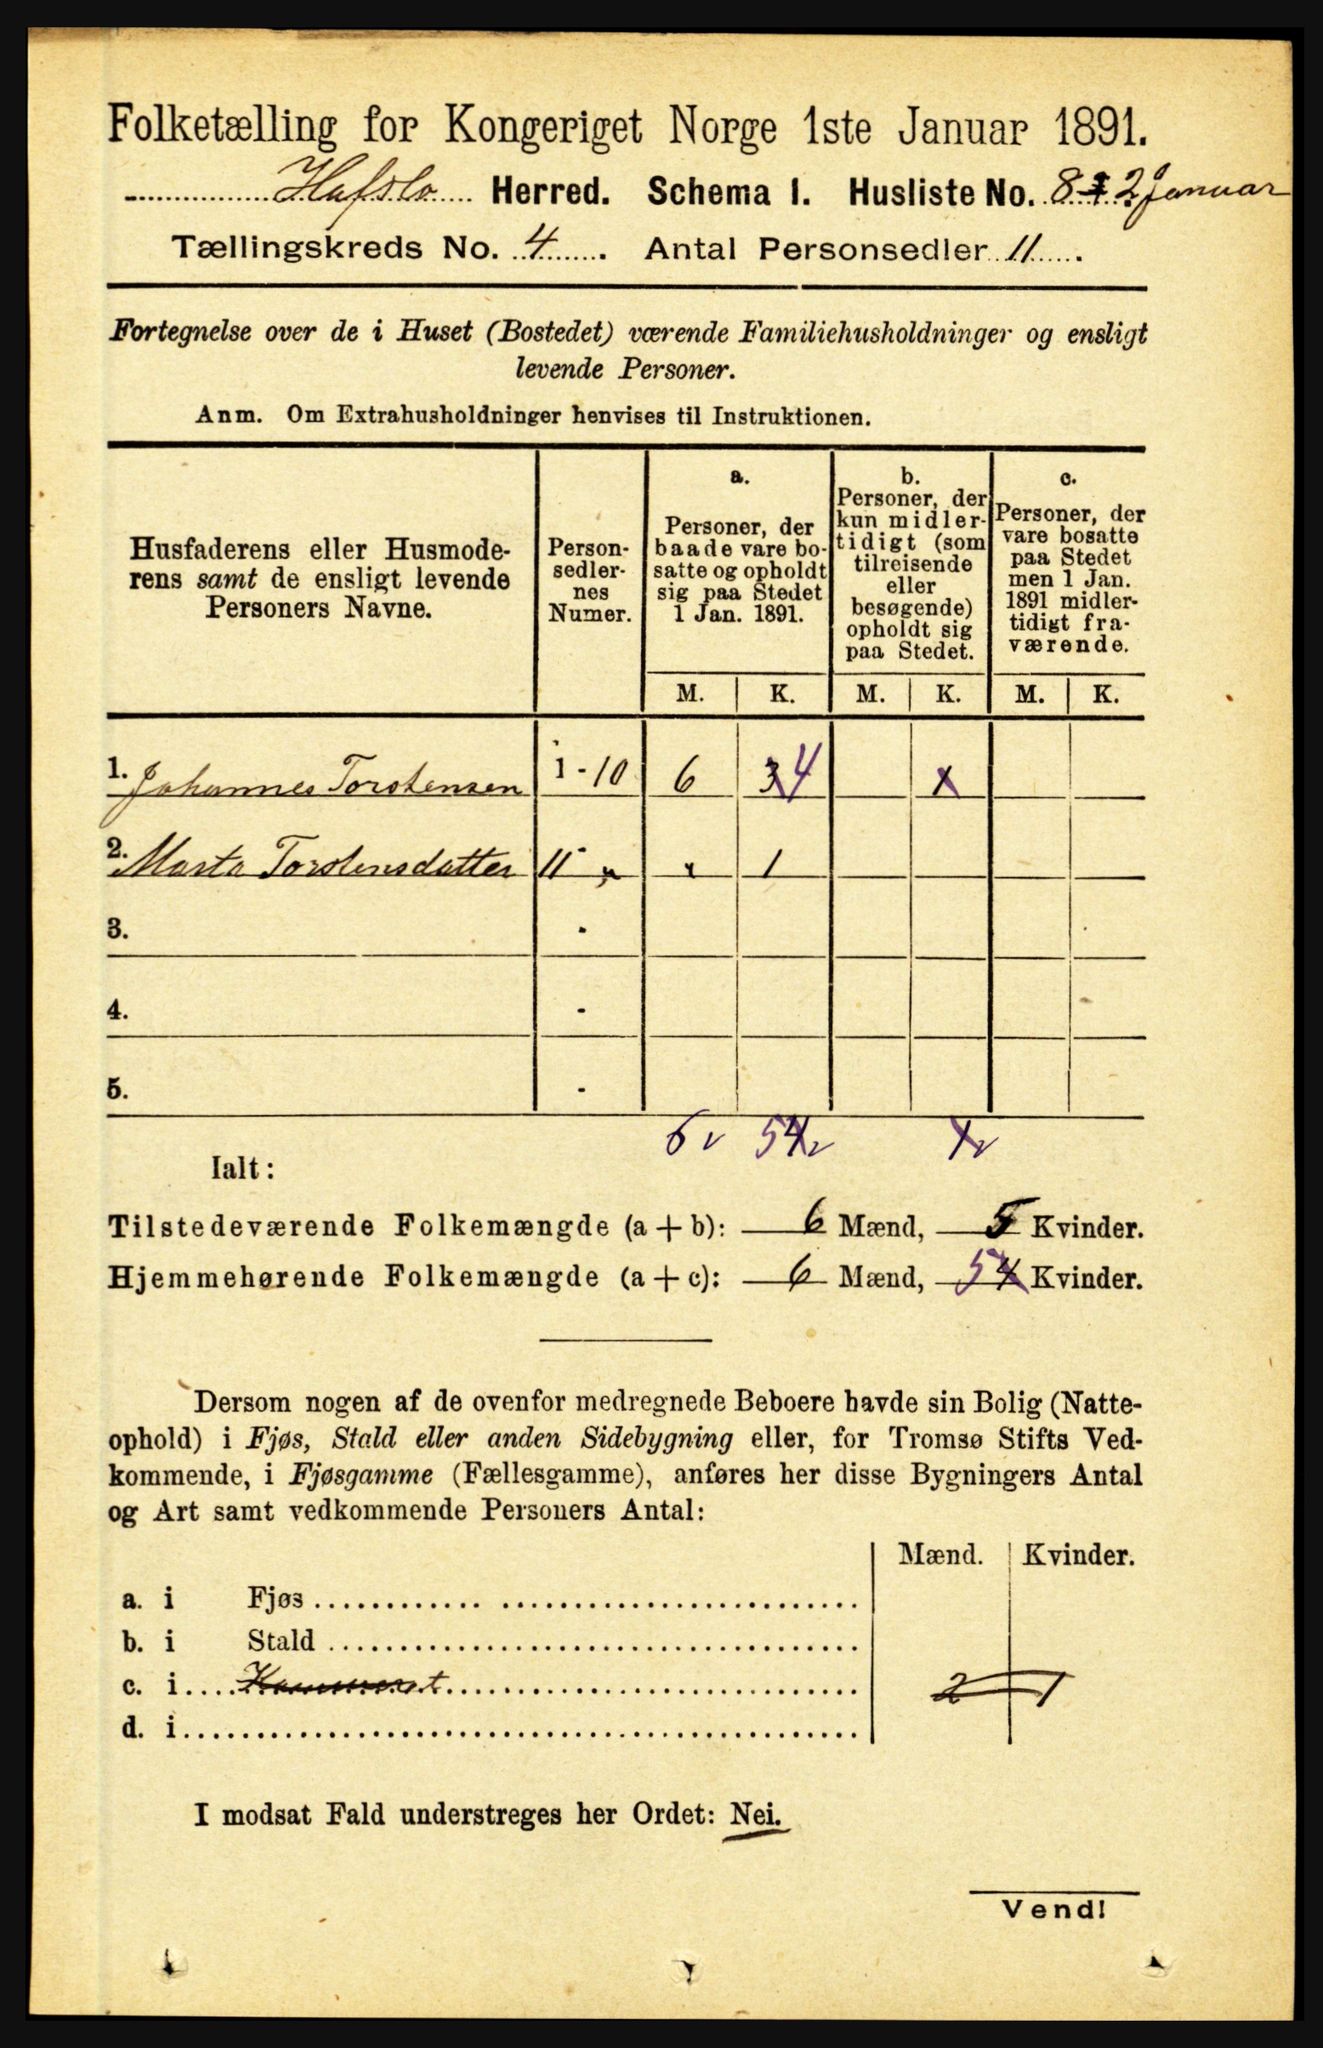 Folketælling for Kongeriget Norge 1ste Januar 1891.
Hafslo Herred. Schema I. Husliste No. 8 2 Januar
Tællingskreds No. 4. Antal Personsedler 11.
Fortegnelse over de i Huset (Bostedet) værende Familiehusholdninger og ensligt
levende Personer.
Anm. Om Extrahusholdninger henvises til Instruktionen.
Husfaderens eller Husmode-
rens samt de ensligt levende
Personers Navne.
Person-
sedler-
nes
Numer.
a.
Personer, der
baade vare bo-
satte og opholdt
sig paa Stedet
1 Jan. 1891.
b.
Personer, der
kun midler-
tidigt (som
tilreisende
eller
besøgende)
opholdt sig
paa Stedet.
c.
Personer, der
vare bosatte
paa Stedet
men 1 Jan.
1891 midler-
tidigt fra-
værende.
M. K. M. K. M. K.
1. Johannes Torstensen 1 - 10 6 3 4 1
2. Marta Torstensdatter 11 - " " 1
3. -
4. -
5. -
6 v 5 4 v 1 v
Ialt:
Tilstedeværende Folkemængde (a + b): 6 Mænd, 5 Kvinder.
Hjemmehørende Folkemængde (a + c): 6 Mænd, 5 4 Kvinder.
Dersom nogen af de ovenfor medregnede Beboere havde sin Bolig (Natte-
ophold) i Fjøs, Stald eller anden Sidebygning eller, for Tromsø Stifts Ved-
kommende, i Fjøsgamme (Fællesgamme), anføres her disse Bygningers Antal
og Art samt vedkommende Personers Antal:
Mænd. Kvinder.
a. i Fjøs
b. i Stald
c. i 2 1
d. i
I modsat Fald understreges her Ordet: Nei.
Vend!